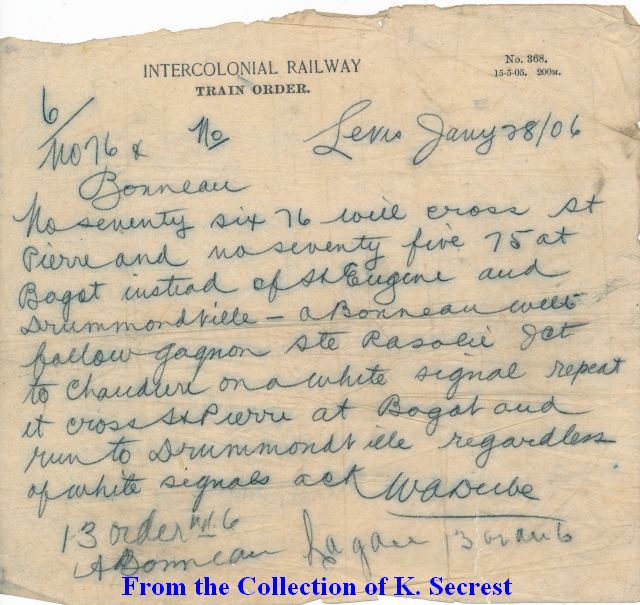 INTERCOLONIAL RAILWAY
TRAIN ORDER.
No. 368.
15-5-05. 200M.
6/
No 76 & No
Levis Jany 28/06
Bonneau
No seventy six 76 will cross St
Pierre and no seventy five 75 at
Bagot instead of St Eugene and
Drummondville - a Bonneau will
follow gagnon Ste Rasalie Jct
to Chaudiere on a white signal repeat
it cross St Pierre at Bagot and
run to Drummondville regardless
of white signals ack WADube
13 order no. 6
A Bonneau
From the Collection of K. Secrest